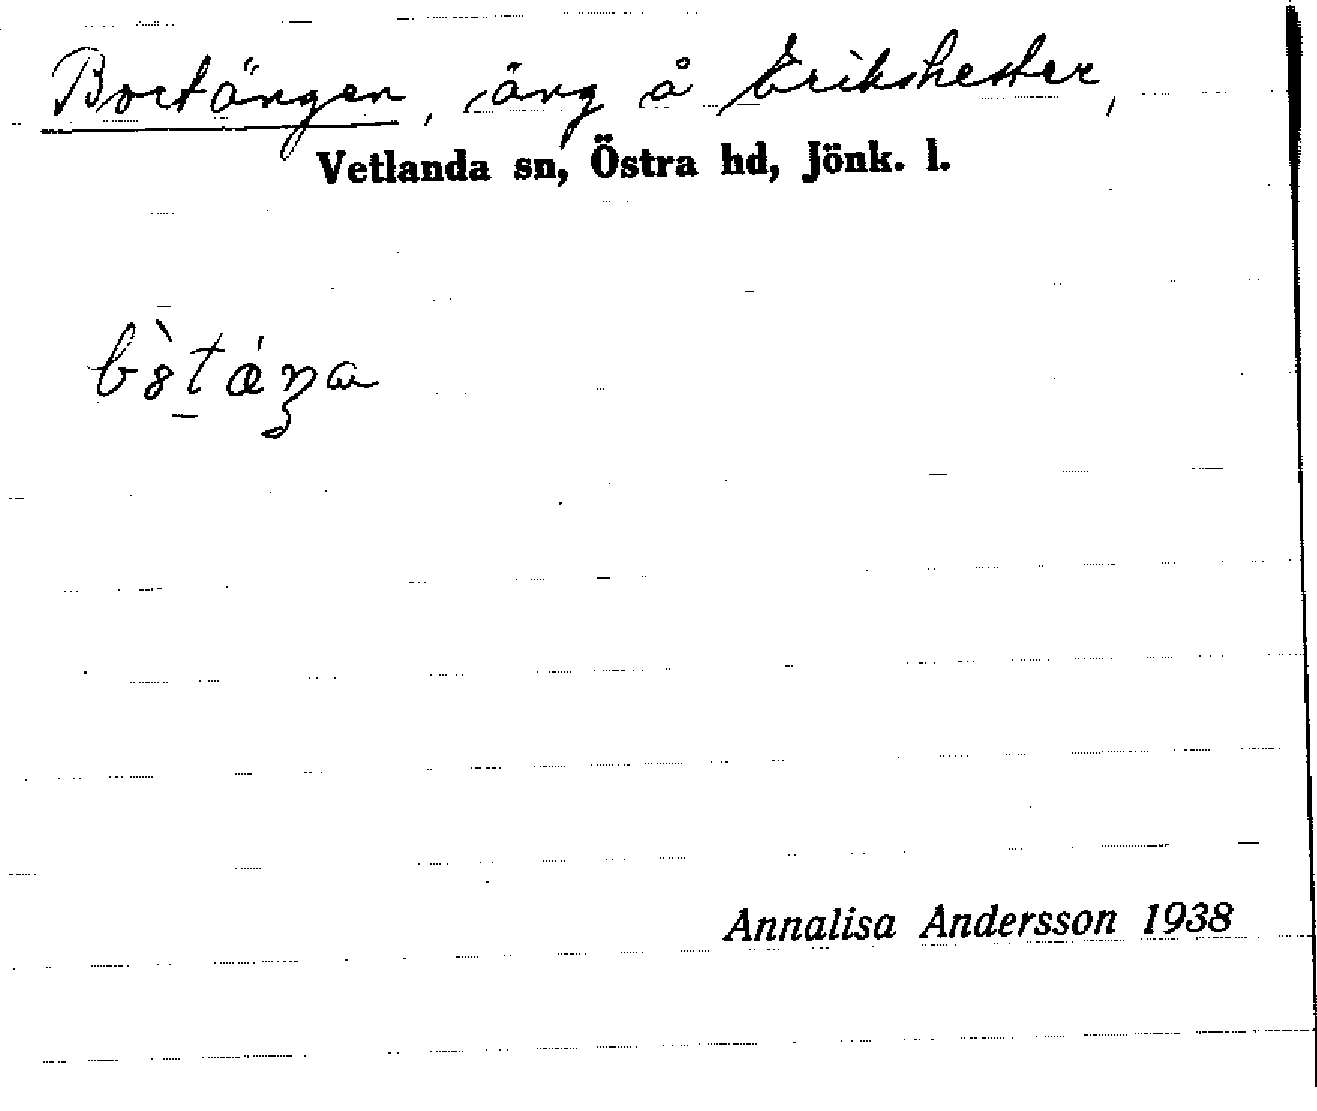 Bortängen, äng å Erikshester,
Vetlanda sn, Östra hd, Jönk. l.
Annalisa Andersson 1938